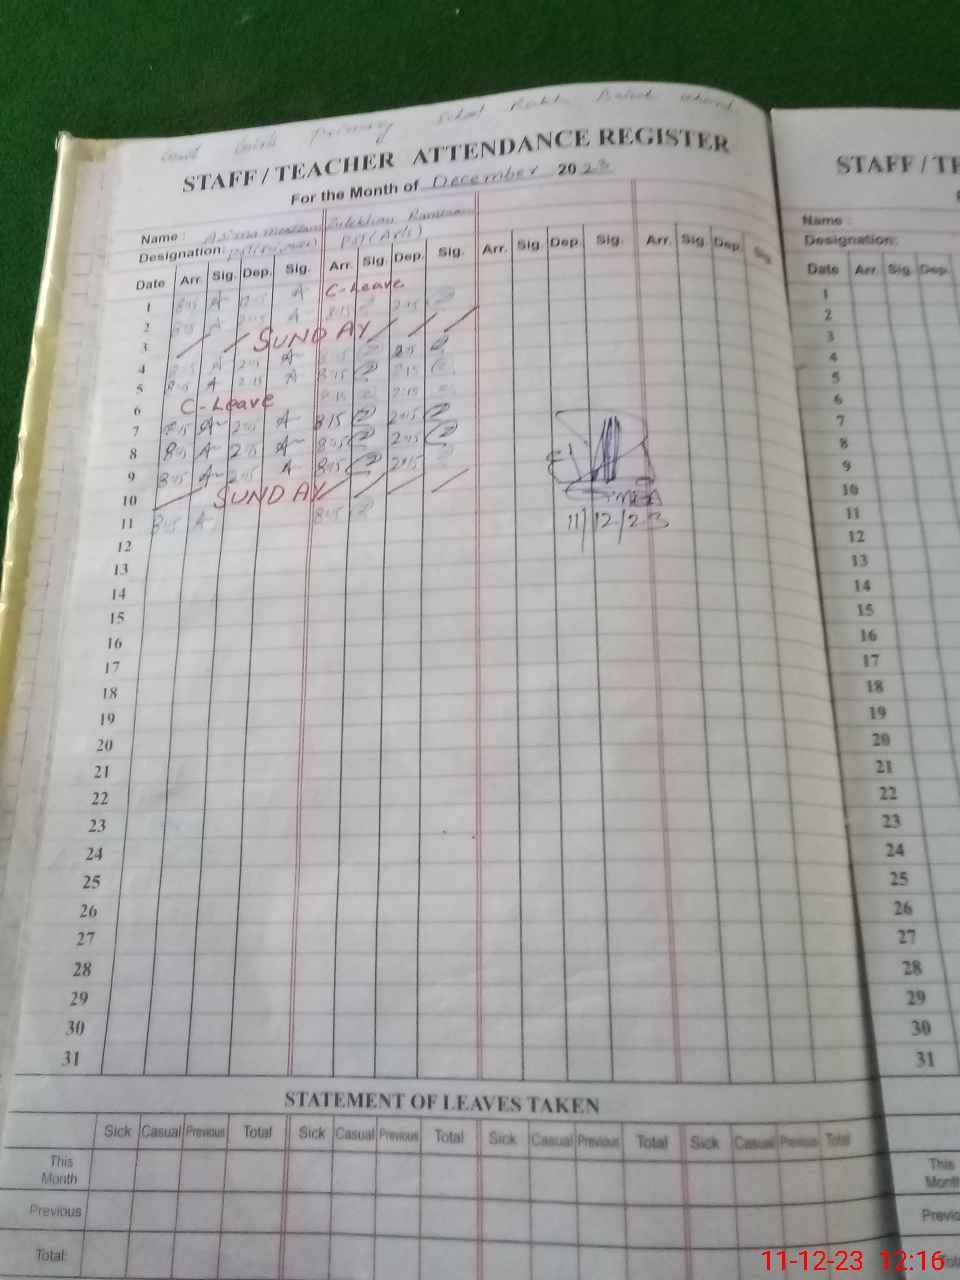 Primary School
STAFF / TEACHER ATTENDANCE REGISTER
STAFF / TE
For the Month of December 2023
Name :
Name :
Designation: PST (Arts)
Designation:
Date Arr. Sig. Dep. Sig. Arr. Sig. Dep. Sig. Arr. Sig. Dep. Sig. Arr. Sig. Dep. Sig.
Date Arr. Sig. Dep.
1 8:15 A A C-Leave
2 8:15 A A 8:15 2:15
3 SUNDAY
4 A 2:15 A 2:15
5 8:15 A 2:15 A 8:15 2:15
6 C-Leave 8:15 2:15
7 8:15 A 2:15 A 8:15 2:15
8 8:15 A 2:15 A 8:15 2:15
9 8:15 A 2:15 A 8:15 2:15
10 SUNDAY
11 8:15 A 8:15
11/12/23
12
13
14
15
16
17
18
19
20
21
22
23
24
25
26
27
28
29
30
31
1
2
3
4
5
6
7
8
9
10
11
12
13
14
15
16
17
18
19
20
21
22
23
24
25
26
27
28
29
30
31
STATEMENT OF LEAVES TAKEN
Sick Casual Previous Total Sick Casual Previous Total Sick Casual Previous Total Sick Casual Previous Total
This Month
This Month
Previous
Previo
Total:
11-12-23 12:16